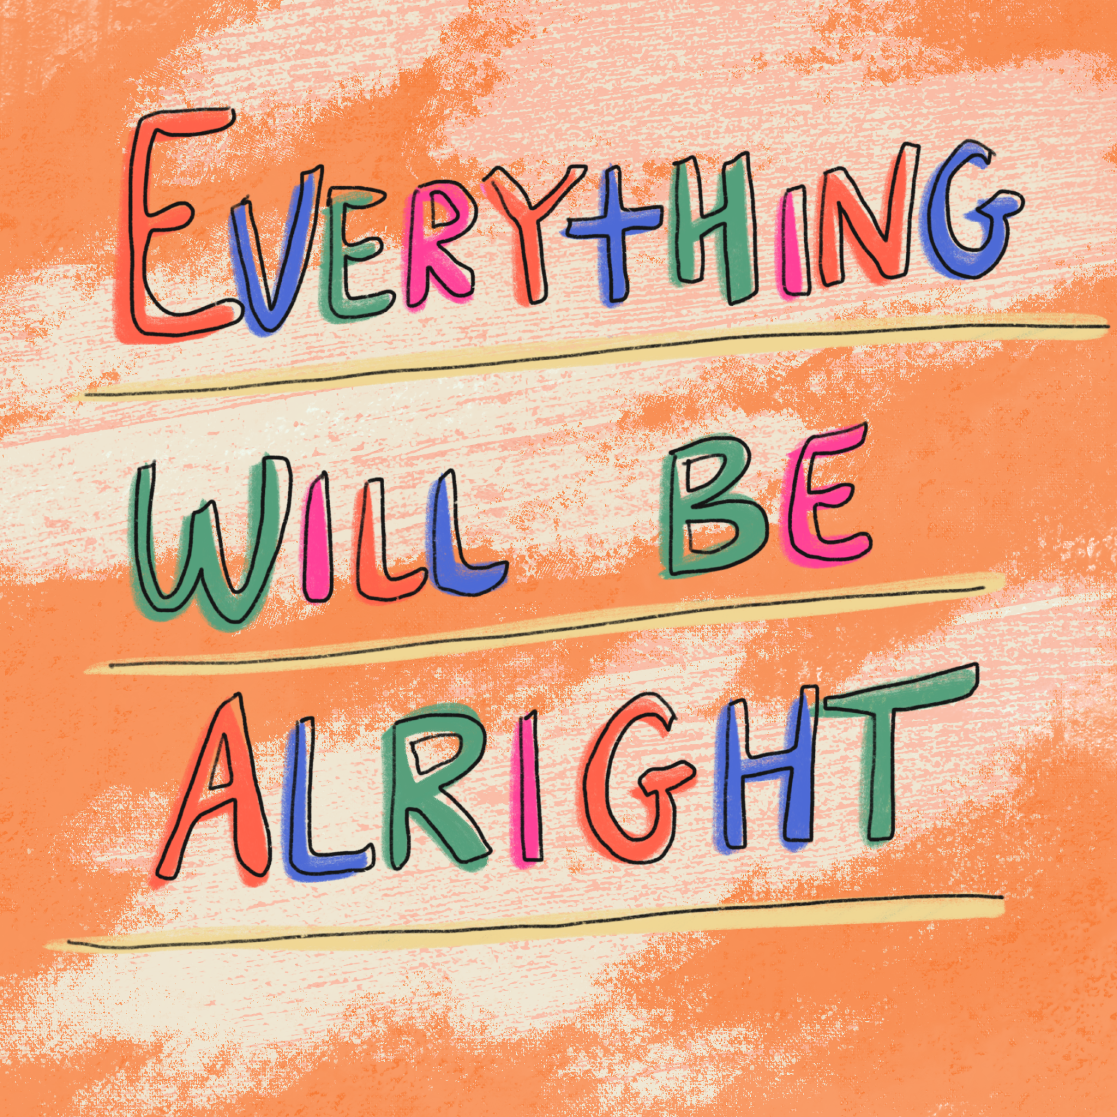 EVERYTHING
WILL BE
ALRIGHT